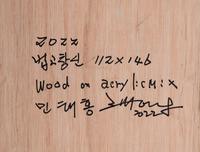 2022
법고창신 112x146
Wood on acrylic mix
민태홍
2022